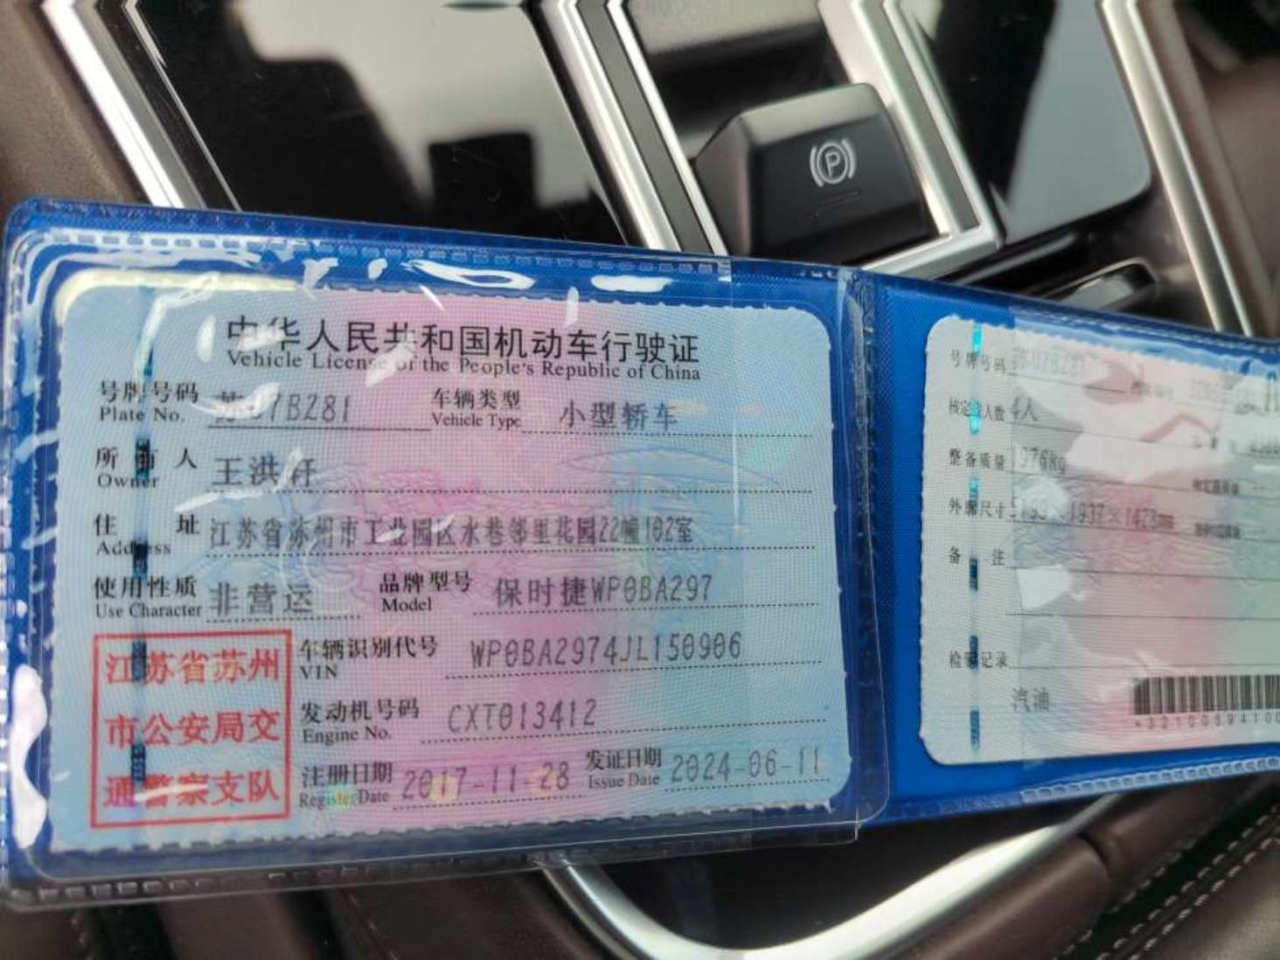 中华人民共和国机动车行驶证
Vehicle License of the People's Republic of China
号牌号码 Plate No. 苏U7B281 车辆类型 Vehicle Type 小型轿车
所有人 Owner 王洪轩
住址 Address 江苏省苏州市工业园区水巷邻里花园22幢102室
使用性质 Use Character 非营运 品牌型号 Model 保时捷WP0BA297
江苏省苏州
市公安局交
通警察支队
车辆识别代号 VIN WP0BA2974JL150906
发动机号码 Engine No. CXT013412
注册日期 Register Date 2017-11-28 发证日期 Issue Date 2024-06-11
号牌号码 苏U7B281
核定载人数 4人
整备质量 1976kg
外廓尺寸
备注
检验记录
汽油
P